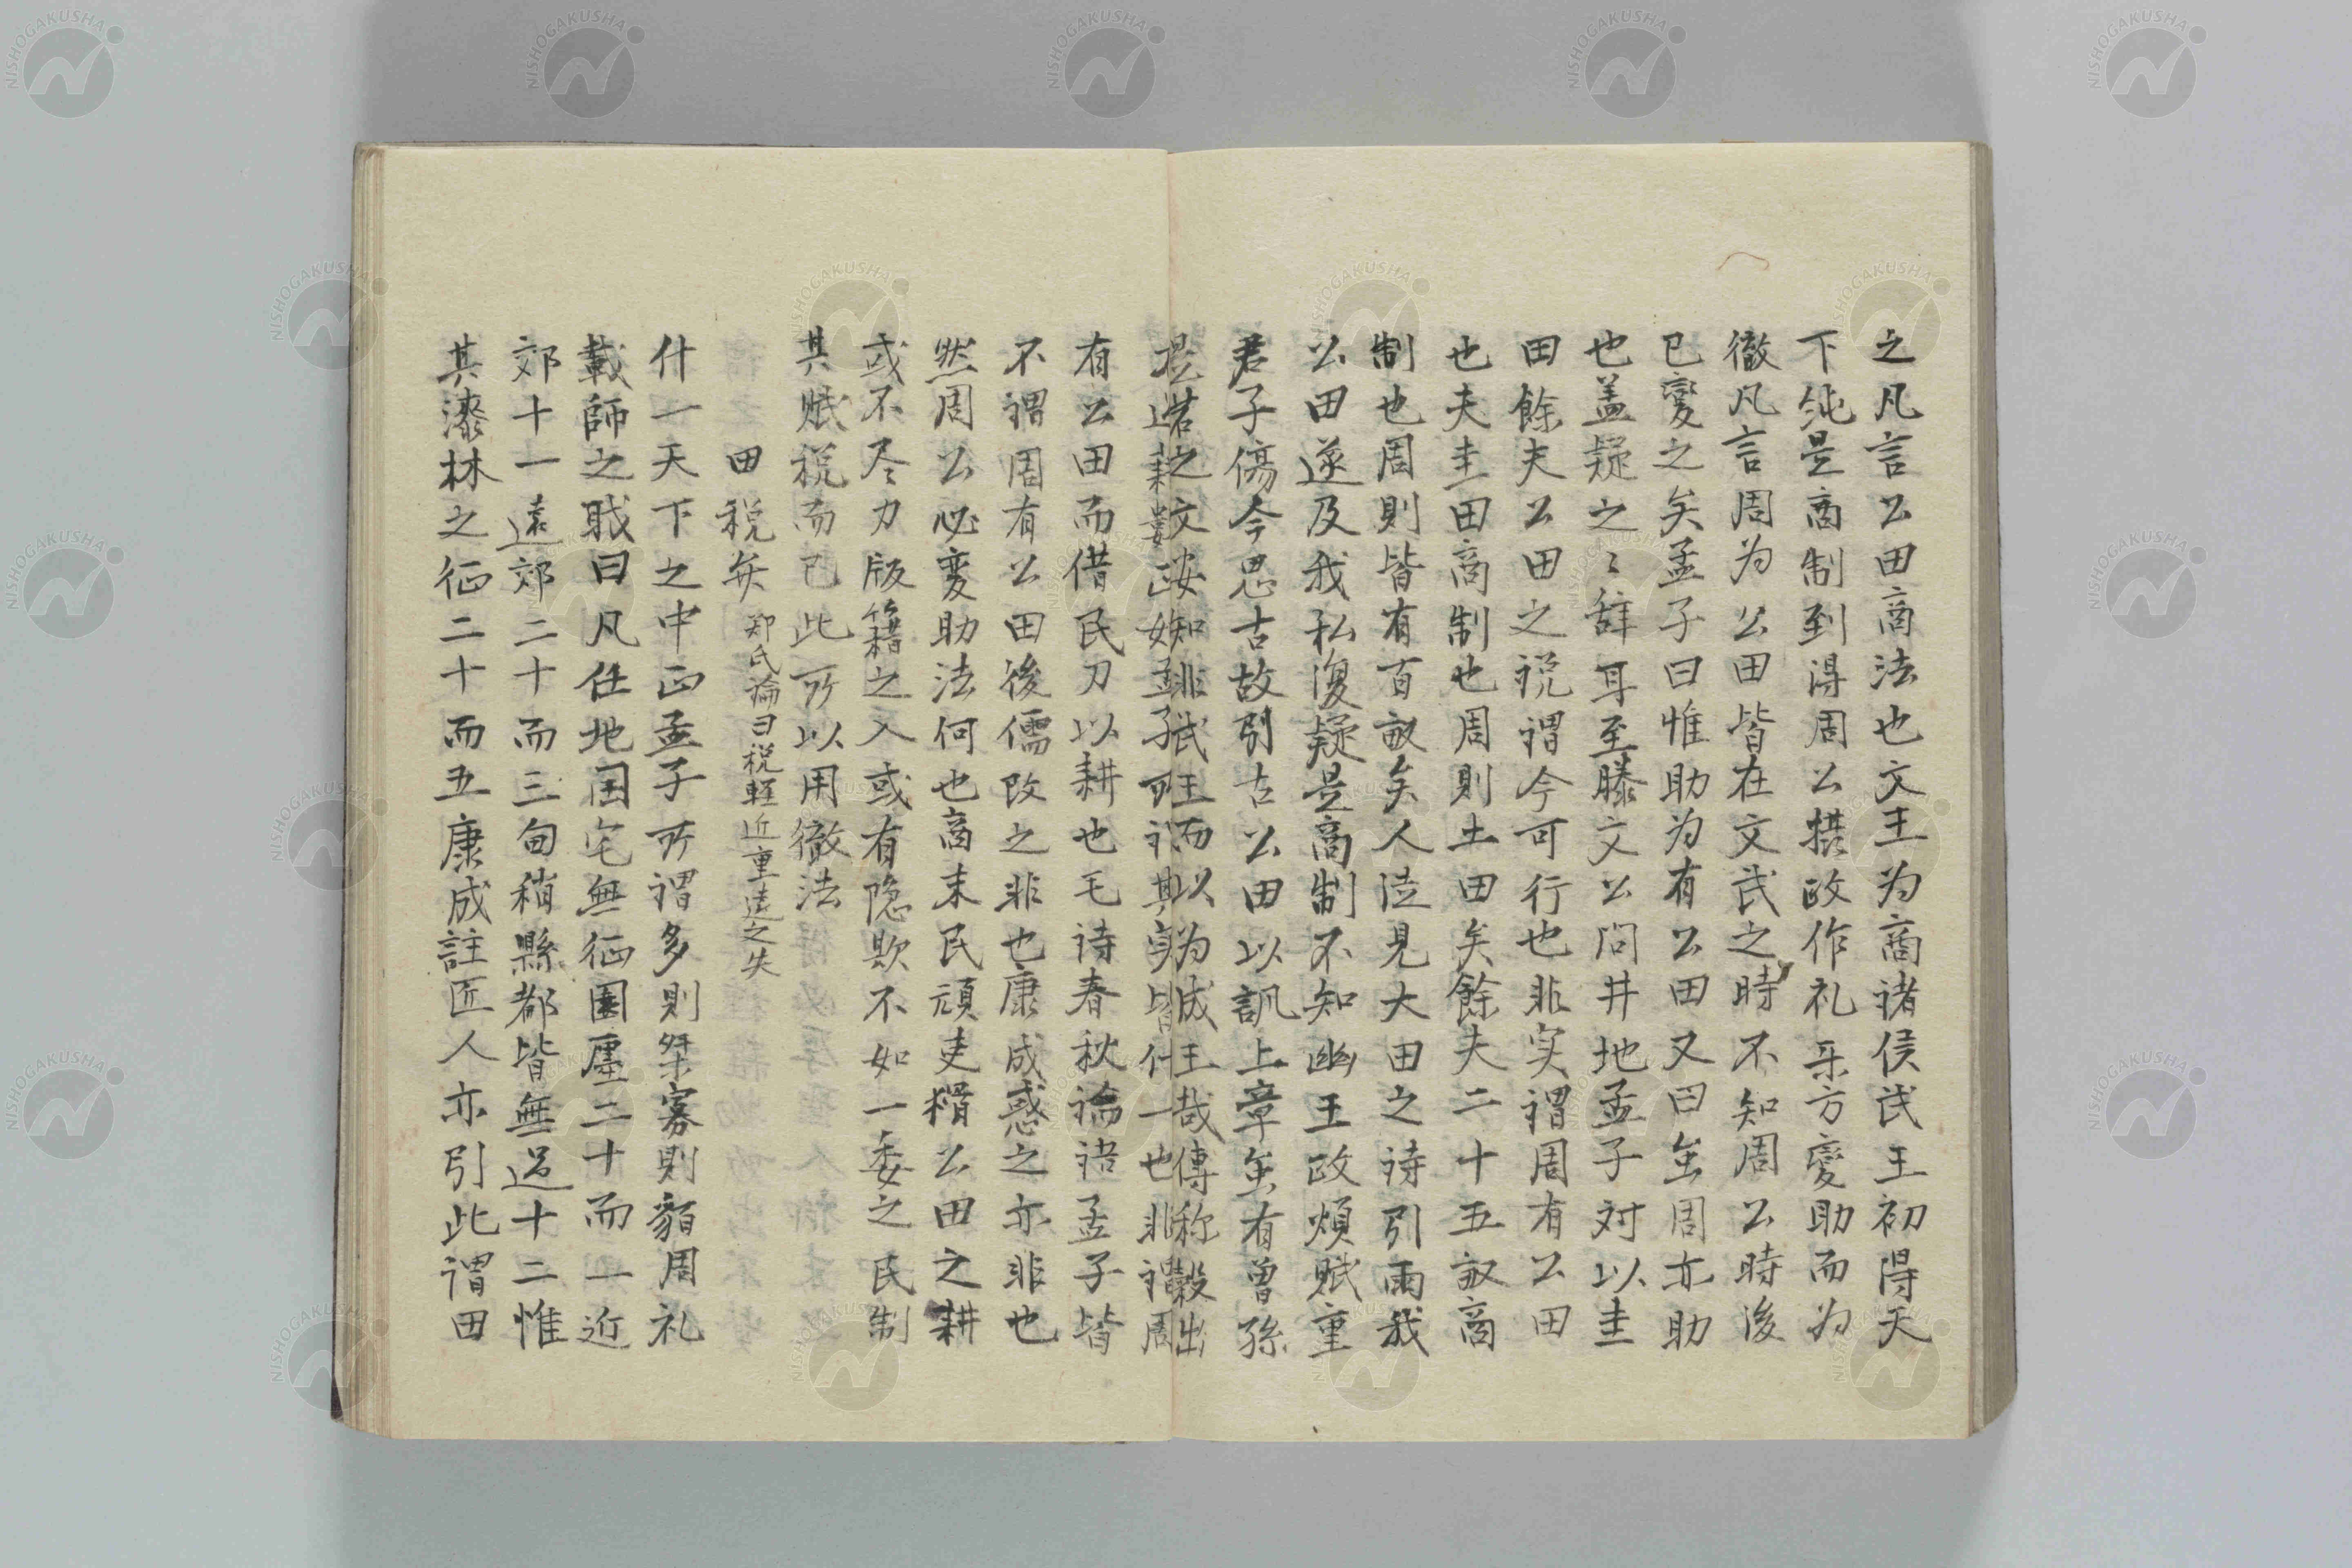 之凡言公田商法也文王为商诸侯武王初得天
下純是商制到得周公攝政作礼乐方变助而为
徹凡言周为公田皆在文武之時不知周公時後
已変之矣孟子曰惟助为有公田又曰虽周亦助
也盖疑之〻辞耳至滕文公问井地孟子対以圭
田餘夫公田之説謂今可行也非实謂周有公田
也夫圭田商制也周則土田矣餘夫二十五畝商
制也周則皆有百畝矣人徒見大田之诗引雨我
公田遂及我私復疑是商制不知幽王政煩賦重
君子傷今思古故引古公田以訊上章虽有曽孫
是若之文安知非武王而以为成王哉傳称穀出
不謂周有公田後儒改之非也康成惑之亦非也
有公田而借民力以耕也毛诗春秋論语孟子皆
然周公必変助法何也商末民頑吏猾公田之耕
或不尽力版籍之入或有隐欺不如一委之民制
其賦税而已此所以用徹法
田税 郑氏論曰税軽近重遠之失
什一天下之中正孟子所謂多則桀寡則貊周礼
載師之職曰凡任地国宅無征園廛二十而一近
郊十一遠郊二十而三甸稍縣都皆無過十二惟
其漆林之征二十而五康成註匠人亦引此謂田